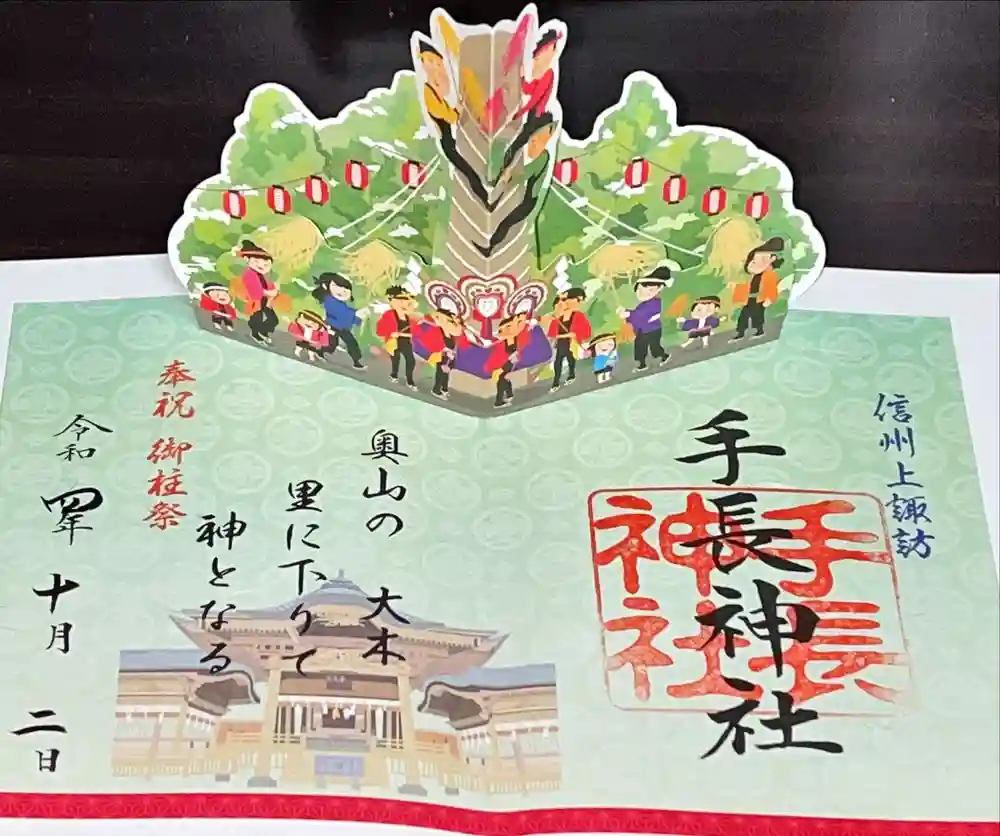 信州上諏訪
手長神社
手長
神社
奥山の 大木
里に下りて
神となる
奉祝 御柱祭
令和 四年 十月 二日